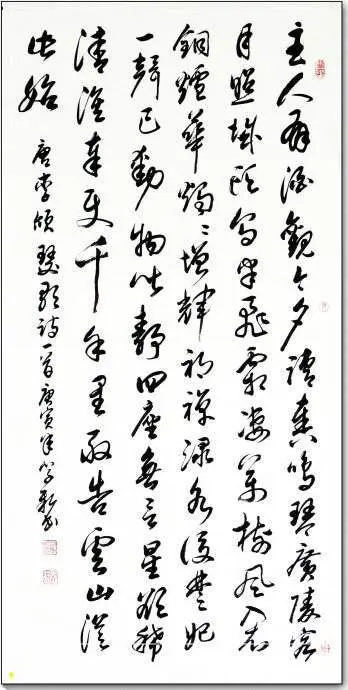 主人有酒歡今夕請奏鳴琴廣陵客
月照城頭烏半飛霜凄萬樹風入衣
銅爐華燭〻增輝初彈渌水後楚妃
一聲已動物皆靜四座無言星欲稀
清淮奉使千余里敢告雲山從
此始
唐李頎琴歌詩一首庚寅年